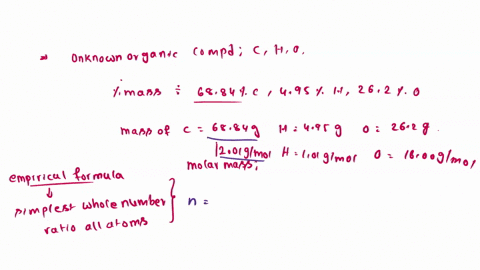 ⇒ Unknown organic compd; C, H, O.
% mass : 68.84% C, 4.95% H, 26.2% O
mass of C = 68.84g H = 4.95g O = 26.2g
12.01g/mol H = 1.01g/mol O = 16.00g/mol
molar mass;
empirical formula
↓
simplest whole number
ratio all atoms } n =